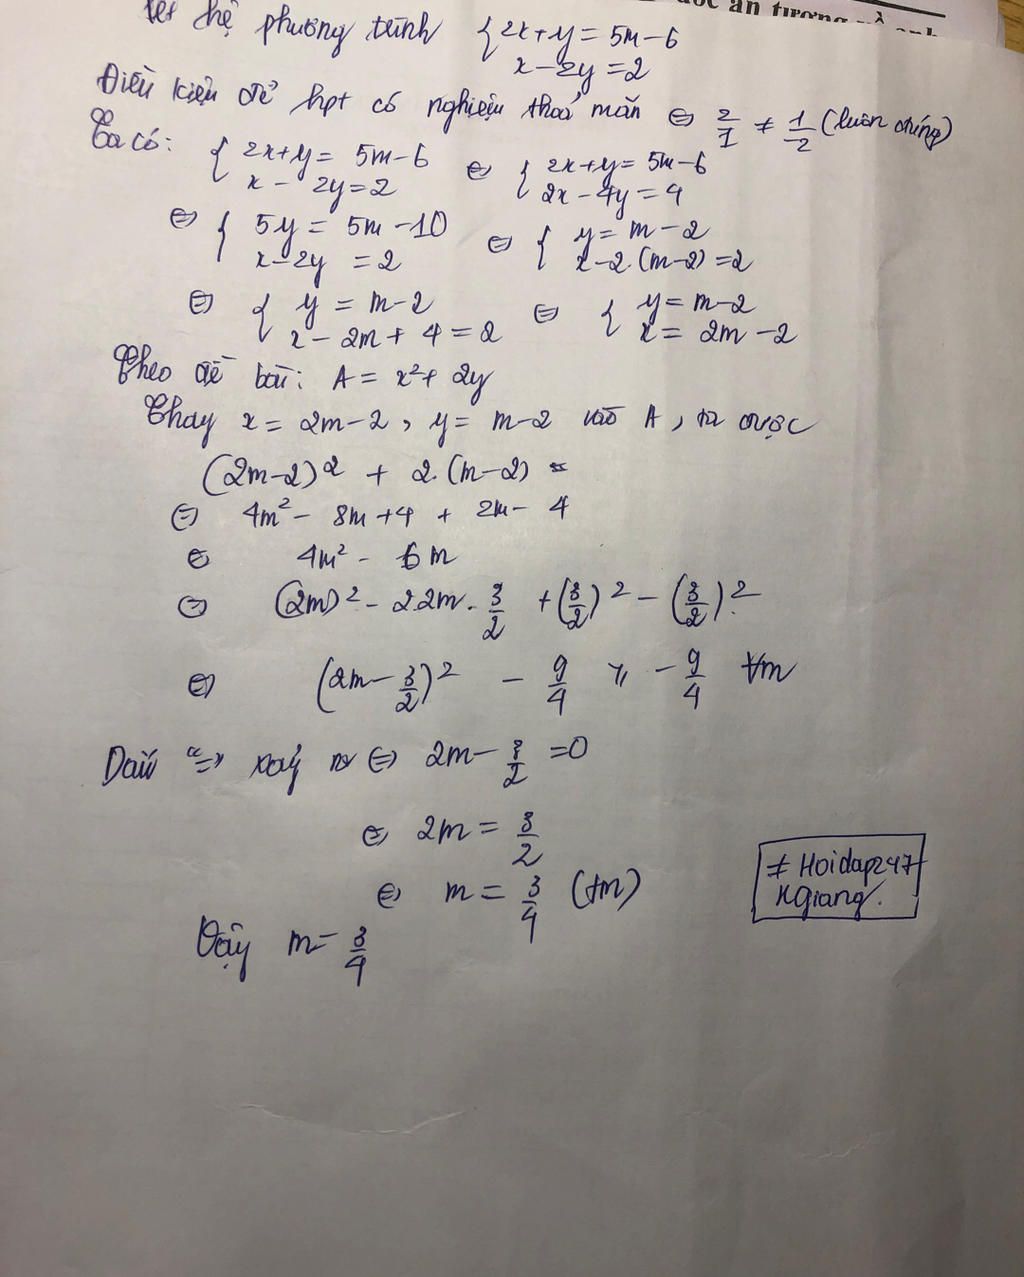 ốc ấn tượng về anh
Xét hệ phương trình { 2x+y = 5m-6
x-2y = 2
Điều kiện để hpt có nghiệm thoả mãn ⇔ 2/1 ≠ 1/-2 (luôn đúng)
Ta có: { 2x+y = 5m-6 ⇔ { 2x+y = 5m-6
x - 2y = 2 2x-4y = 4
⇔ { 5y = 5m-10 ⇔ { y = m-2
x-2y = 2 x-2.(m-2) = 2
⇔ { y = m-2 ⇔ { y = m-2
x-2m+4 = 2 x = 2m-2
Theo đề bài: A = x²+2y
Thay x = 2m-2, y = m-2 vào A, ta được
(2m-2)² + 2.(m-2) =
⇔ 4m² - 8m+4 + 2m-4
⇔ 4m² - 6m
⇔ (2m)² - 2.2m.3/2 + (3/2)² - (3/2)²
⇔ (2m-3/2)² - 9/4 ≥ -9/4 ∀m
Dấu "=" xảy ra ⇔ 2m-3/2 = 0
⇔ 2m = 3/2
⇔ m = 3/4 (tm)
Vậy m = 3/4
≠ Hoidap247
HGiang.